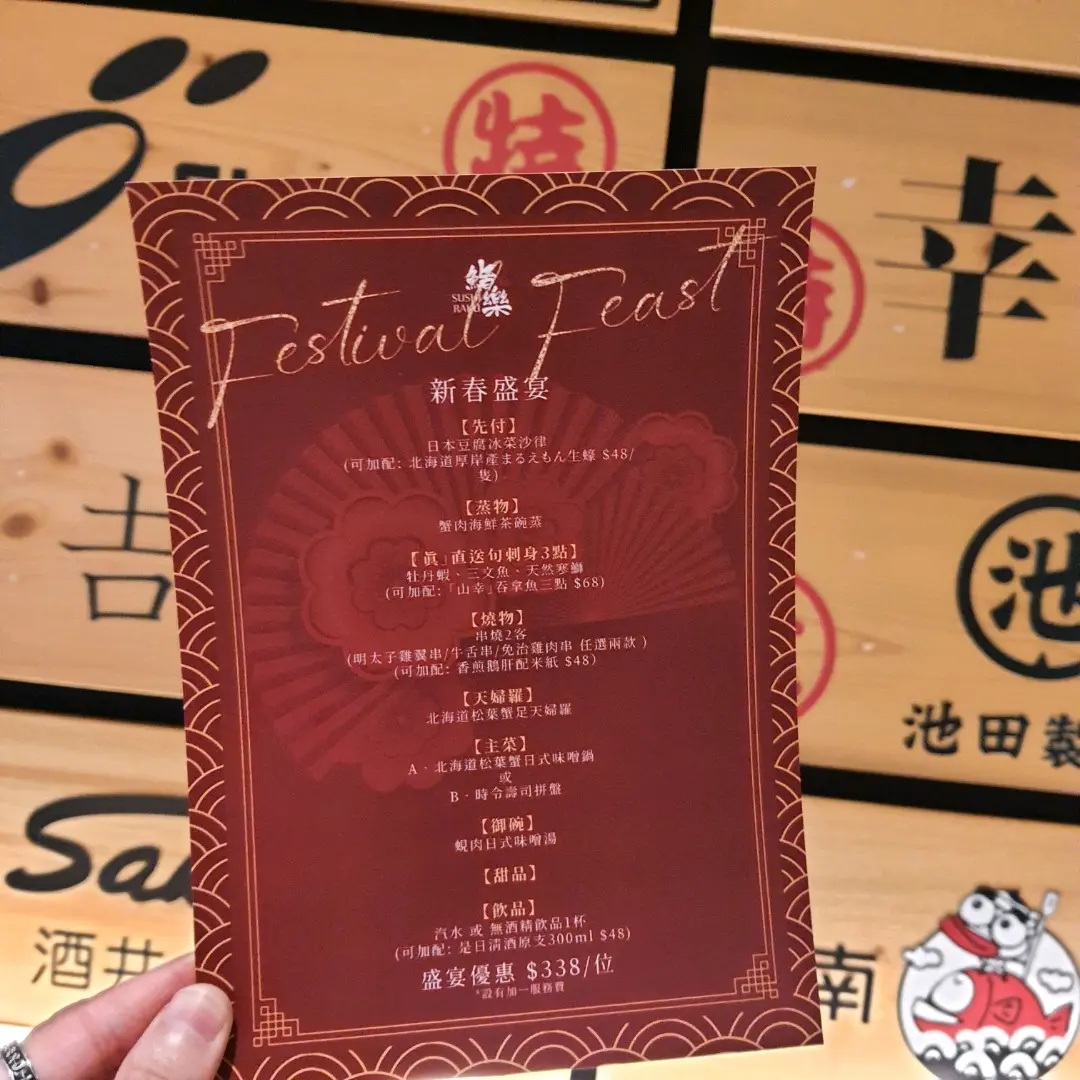 特
幸
吉
池
池田製
Sa
酒井
南
鮨樂
SUSHI
RAKU
Festival Feast
新春盛宴
【先付】
日本豆腐冰菜沙律
(可加配: 北海道厚岸產まるえもん生蠔 $48/
隻)
【蒸物】
蟹肉海鮮茶碗蒸
【「眞」直送旬刺身3點】
牡丹蝦、三文魚、天然寒鰤
(可加配:「山幸」吞拿魚三點 $68)
【燒物】
串燒2客
(明太子雞翼串/牛舌串/免治雞肉串 任選兩款 )
(可加配: 香煎鵝肝配米紙 $48)
【天婦羅】
北海道松葉蟹足天婦羅
【主菜】
A．北海道松葉蟹日式味噌鍋
或
B．時令壽司拼盤
【御碗】
蜆肉日式味噌湯
【甜品】
【飲品】
汽水 或 無酒精飲品1杯
(可加配: 是日清酒原支300ml $48)
盛宴優惠 $338/位
*設有加一服務費